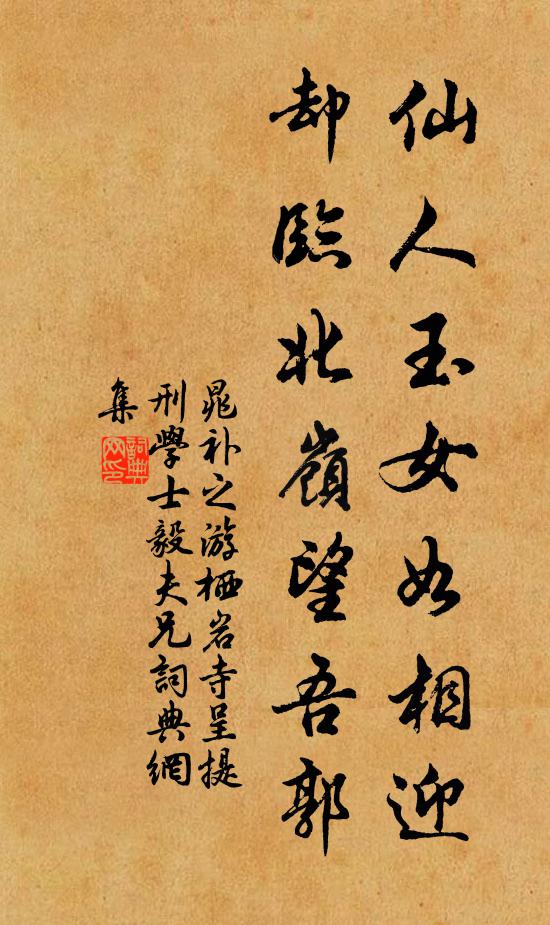 仙人玉女如相迎
却臨北嶺望吾郭
晁补之游栖岩寺呈提
刑學士毅夫兄詞典網
集
詞典網印